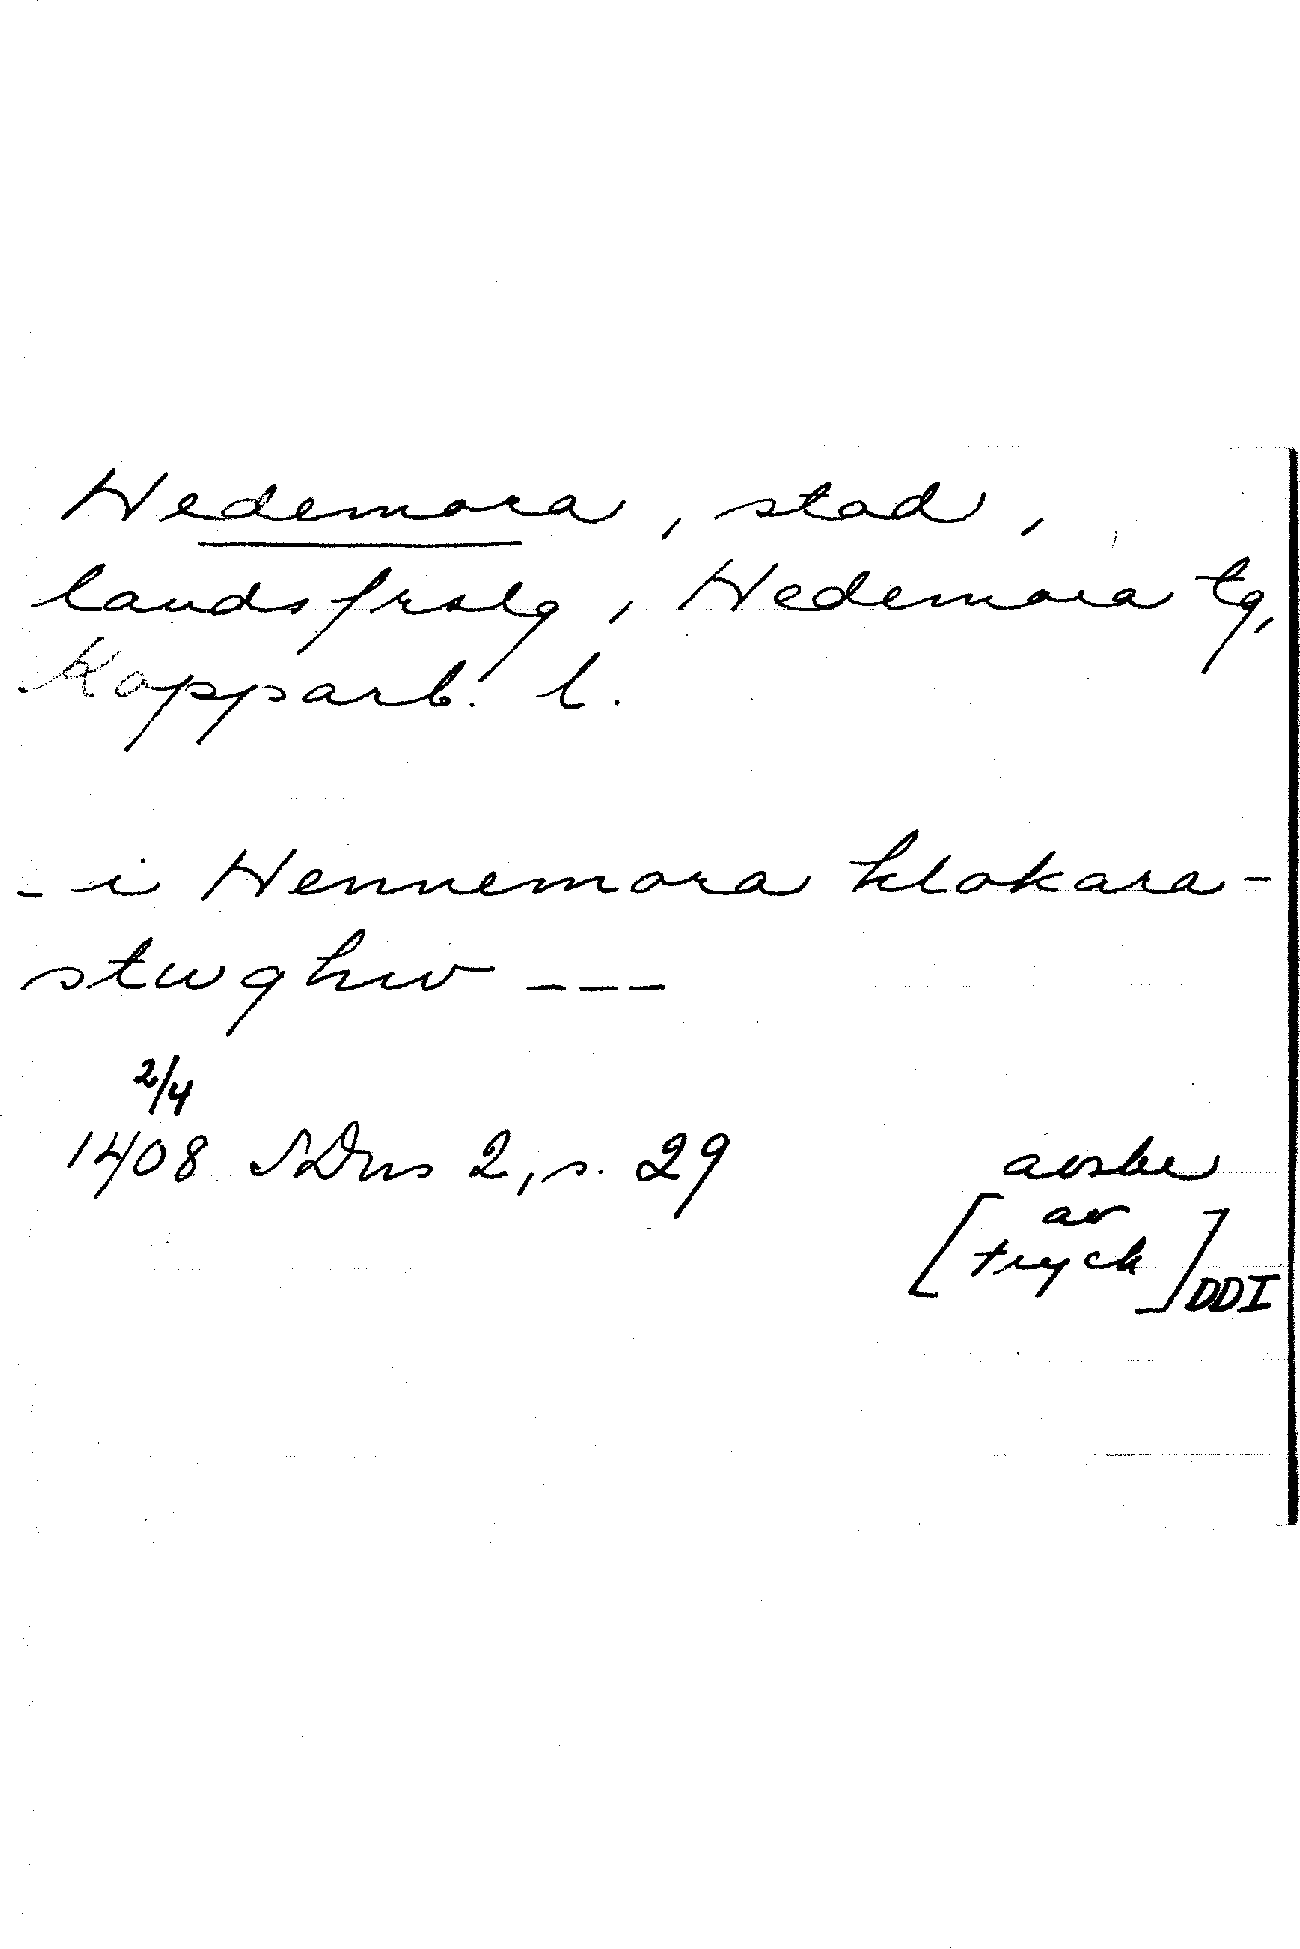 Hedemora, stad,
landsfrslg, Hedemora tg,
Kopparb. l.
- i Hennemora klokara-
stwghw ---
2/4
1408 SDns 2, s. 29
avskr
[av
tryck] DDI